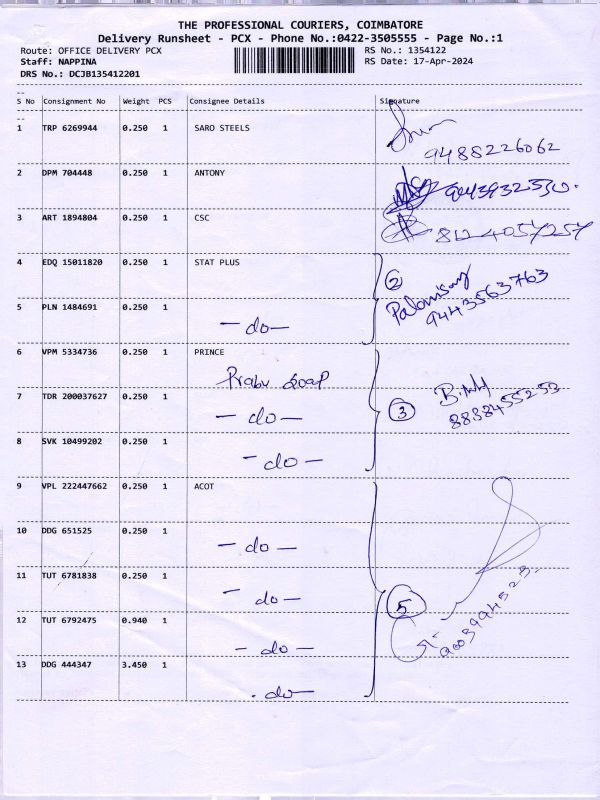 THE PROFESSIONAL COURIERS, COIMBATORE
Delivery Runsheet - PCX - Phone No.:0422-3505555 - Page No.:1
Route: OFFICE DELIVERY PCX RS No.: 1354122
Staff: NAPPINA RS Date: 17-Apr-2024
DRS No.: DCJB135412201
S No Consignment No Weight PCS Consignee Details Signature
1 TRP 6269944 0.250 1 SARO STEELS
9488226062
2 DPM 704448 0.250 1 ANTONY 9043932530.
3 ART 1894804 0.250 1 CSC 8124057257
4 EDQ 15011820 0.250 1 STAT PLUS 2
Palanisamy
9443563763
5 PLN 1484691 0.250 1
- do -
6 VPM 5334736 0.250 1 PRINCE
Prabu Soap
7 TDR 200037627 0.250 1
- do - 3
8838455253
8 SVK 10499202 0.250 1
- do -
9 VPL 222447662 0.250 1 ACOT
10 DDG 651525 0.250 1
- do -
11 TUT 6781838 0.250 1
- do - 5
12 TUT 6792475 0.940 1
- do -
13 DDG 444347 3.450 1
- do -